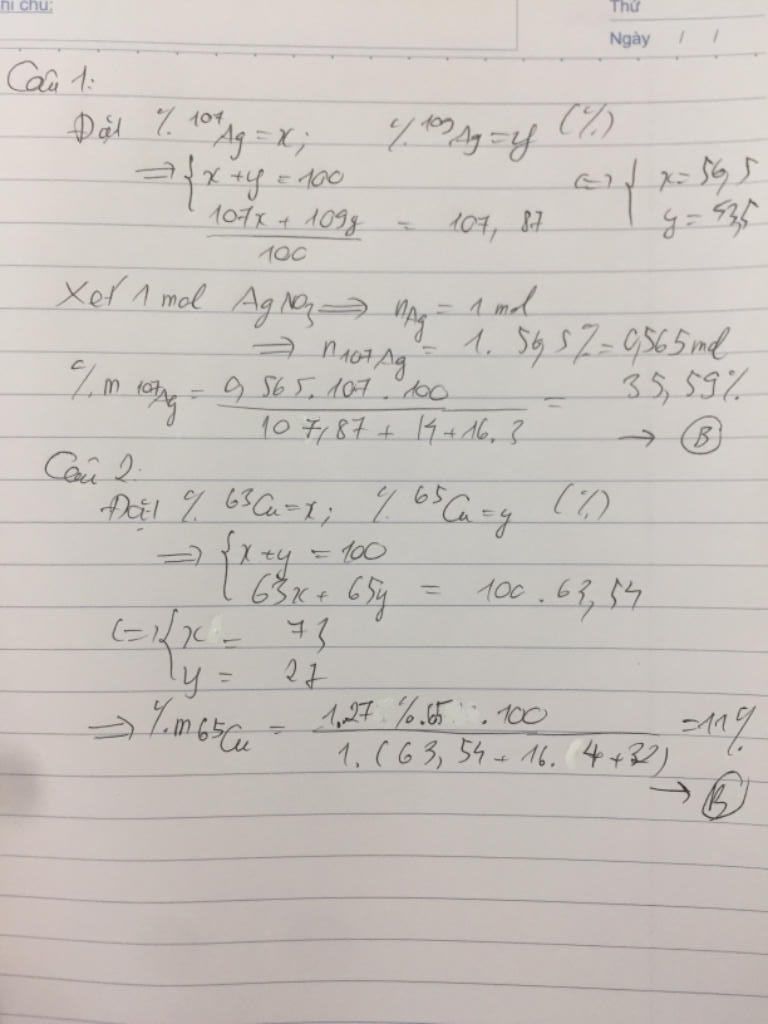 hi chú:
Thứ
Ngày / /
Câu 1:
Đặt % ¹⁰⁷Ag = x; % ¹⁰⁹Ag = y (%)
=> { x + y = 100 <=> { x = 56,5
107x + 109y / 100 = 107,87 y = 43,5
Xét 1 mol AgNO₃ => nAg = 1 mol
=> n107Ag = 1. 56,5% = 0,565 mol
%m 107Ag = 0,565.107.100 / 107,87 + 14 + 16.3 = 35,59%
→ B
Câu 2:
Đặt % ⁶³Cu = x; % ⁶⁵Cu = y (%)
=> { x + y = 100
63x + 65y = 100.63,54
<=> { x = 73
y = 27
=> %m65Cu = 1.27%.65.100 / 1.(63,54 + 16.4 + 32) = 11%
→ B